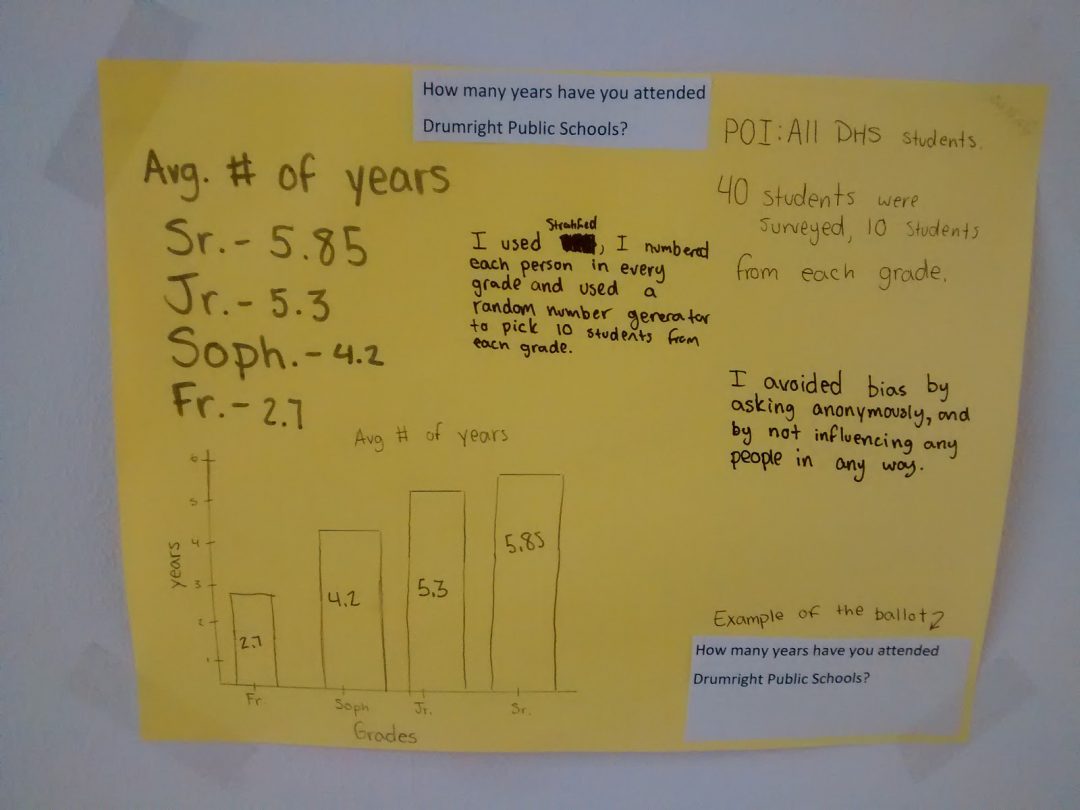 How many years have you attended
Drumright Public Schools?
Avg. # of years
Sr. - 5.85
Jr. - 5.3
Soph. - 4.2
Fr. - 2.7
I used Stratified, I numbered
each person in every
grade and used a
random number generator
to pick 10 students from
each grade.
POI: All DHS students.
40 students were
surveyed, 10 students
from each grade.
I avoided bias by
asking anonymously, and
by not influencing any
people in any way.
Avg # of years
years
6
5
4
3
2
1
2.7
4.2
5.3
5.85
Fr.
Soph
Jr.
Sr.
Grades
Example of the ballot
How many years have you attended
Drumright Public Schools?